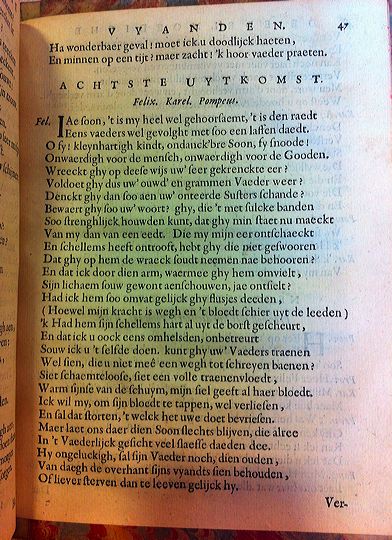 VYANDEN. 47
Ha wonderbaer geval! moet ick u doodlijck haeten,
En minnen op een tijt? maer zacht! 'k hoor vaeder praeten.
ACHTSTE UYTKOMST.
Felix. Karel. Pompeus.
Fel. IAe soon, 't is my heel wel gehoorsaemt, 't is den raedt
Eens vaeders wel gevolght met soo een lassen daedt.
O sy! kleynhartigh kindt, ondanck'bre Soon, sy snoode!
Onwaerdigh voor de mensch, onwaerdigh voor de Gooden.
Wreeckt ghy op deese wijs uw' seer gekrenckte eer?
Voldoet ghy dus uw' ouwd' en grammen Vaeder weer?
Denckt ghy dan soo aen uw' onteerde Susters schande?
Bewaert ghy soo uw' woort? ghy, die 't met sulcke banden
Soo strenghlijck houwden kunt, dat ghy mijn staet nu maeckt
Van my dan van een eedt. Die my mijn eer ontschaeckt
En schellems heeft ontroost, hebt ghy die niet geswooren
Dat ghy op hem de wraeck soudt neemen nae behooren?
En dat ick door dien arm, waermee ghy hem omvielt,
Sijn lichaem souw gewont aenschouwen, jae ontsielt?
Had ick hem soo omvat gelijck ghy flusjes deeden,
(Hoewel mijn kracht is wegh en 't bloedt schier uyt de leeden)
'k Had hem sijn schellems hart al uyt de borst gescheurt,
En dat ick u oock eens omhelsden, onbetreurt
Souw ick u 't selfde doen. kunt ghy uw' Vaeders traenen
Wel sien, die u niet meê een wegh tot schreyen baenen?
Siet schaemteloose, siet een volle traenenvloedt,
Warm sijnse van de schuym, mijn siel geeft al haer bloedt.
Ick wil my, om sijn bloedt te tappen, wel verliesen,
En sal dat storten, 't welck het uwe doet bevriesen.
Maer laet ons daer dien Soon slechts blijven, die alree
In 't Vaederlijck gesicht veel slaesse daeden dee.
Hy ongeluckigh, sal sijn Vaeder noch, dien ouden,
Van daegh de overhant sijns vyandts sien behouden,
Of liever sterven dan te leeven gelijck hy.
Ver-